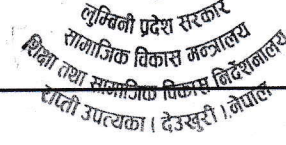 लुम्बिनी प्रदेश सरकार
सामाजिक विकास मन्त्रालय
शिक्षा तथा सामाजिक विकास निर्देशनालय
राप्ती उपत्यका ( देउखुरी ) नेपाल